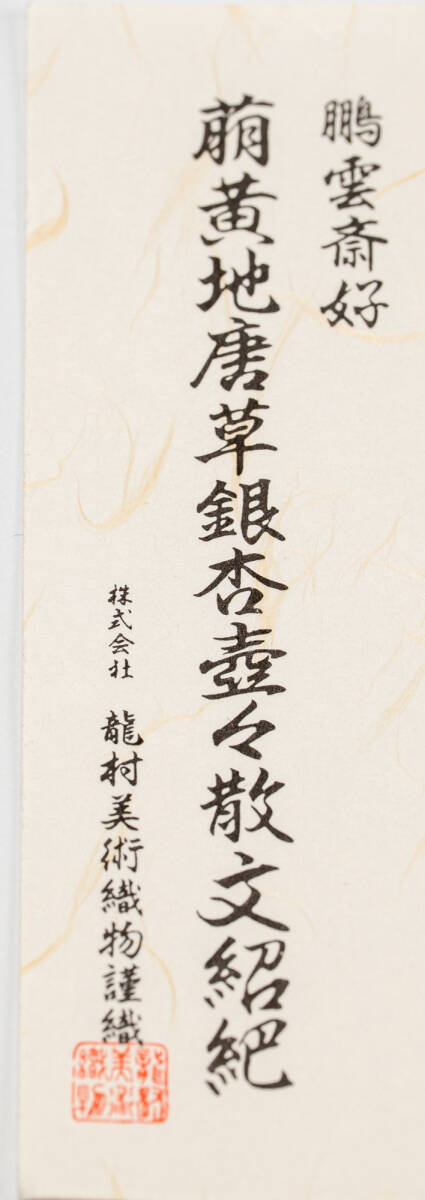 鵬雲斎好
萠黄地唐草銀杏壺々散文紹紦
株式会社 龍村美術織物謹織
龍村美術織物